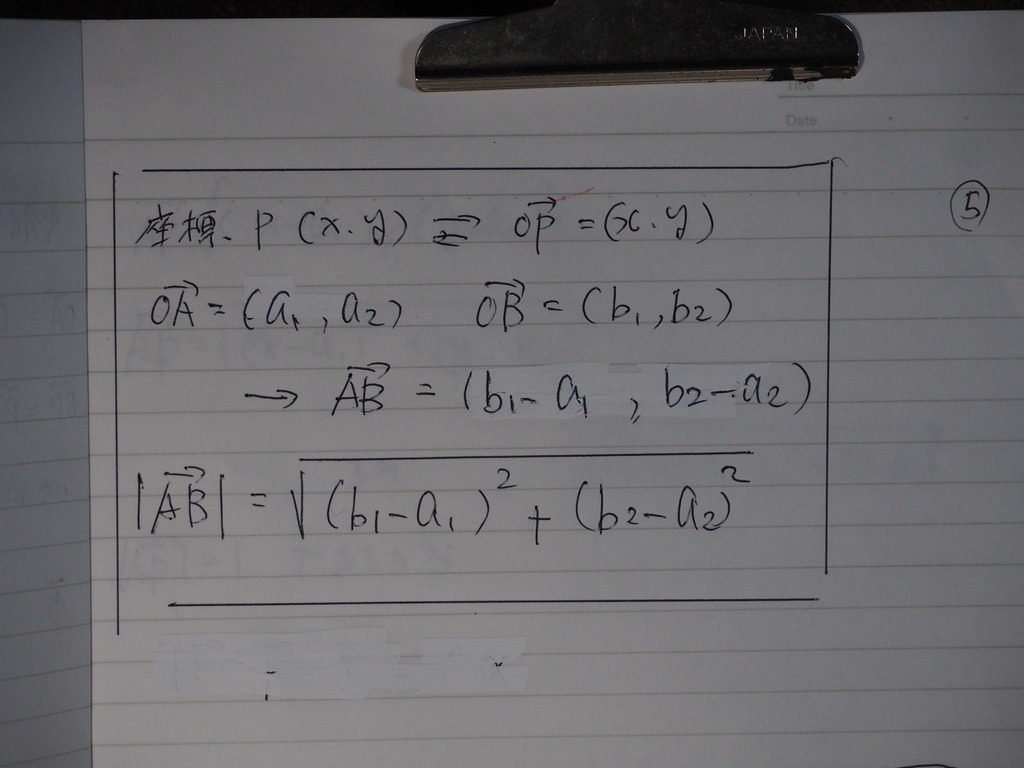 JAPAN
Title
Date
⑤
座標、P (x.y) ⇌ \overrightarrow{OP} = (x.y)
\overrightarrow{OA} = (a₁, a₂) \overrightarrow{OB} = (b₁, b₂)
→ \overrightarrow{AB} = (b₁-a₁, b₂-a₂)
|\overrightarrow{AB}| = \sqrt{(b₁-a₁)² + (b₂-a₂)²}